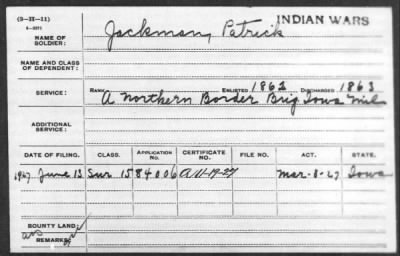 (3-II-11)
INDIAN WARS
NAME OF SOLDIER: Jackman, Patrick
NAME AND CLASS OF DEPENDENT:
SERVICE: RANK ENLISTED 1862 DISCHARGED 1863
A Northern Border Brig Iowa Mil
ADDITIONAL SERVICE:
DATE OF FILING. CLASS. APPLICATION No. CERTIFICATE No. FILE NO. ACT. STATE.
1927 June 13 Sur 1584006 A 11-19-27 Mar-3-27 Iowa
BOUNTY LAND:
REMARKS: